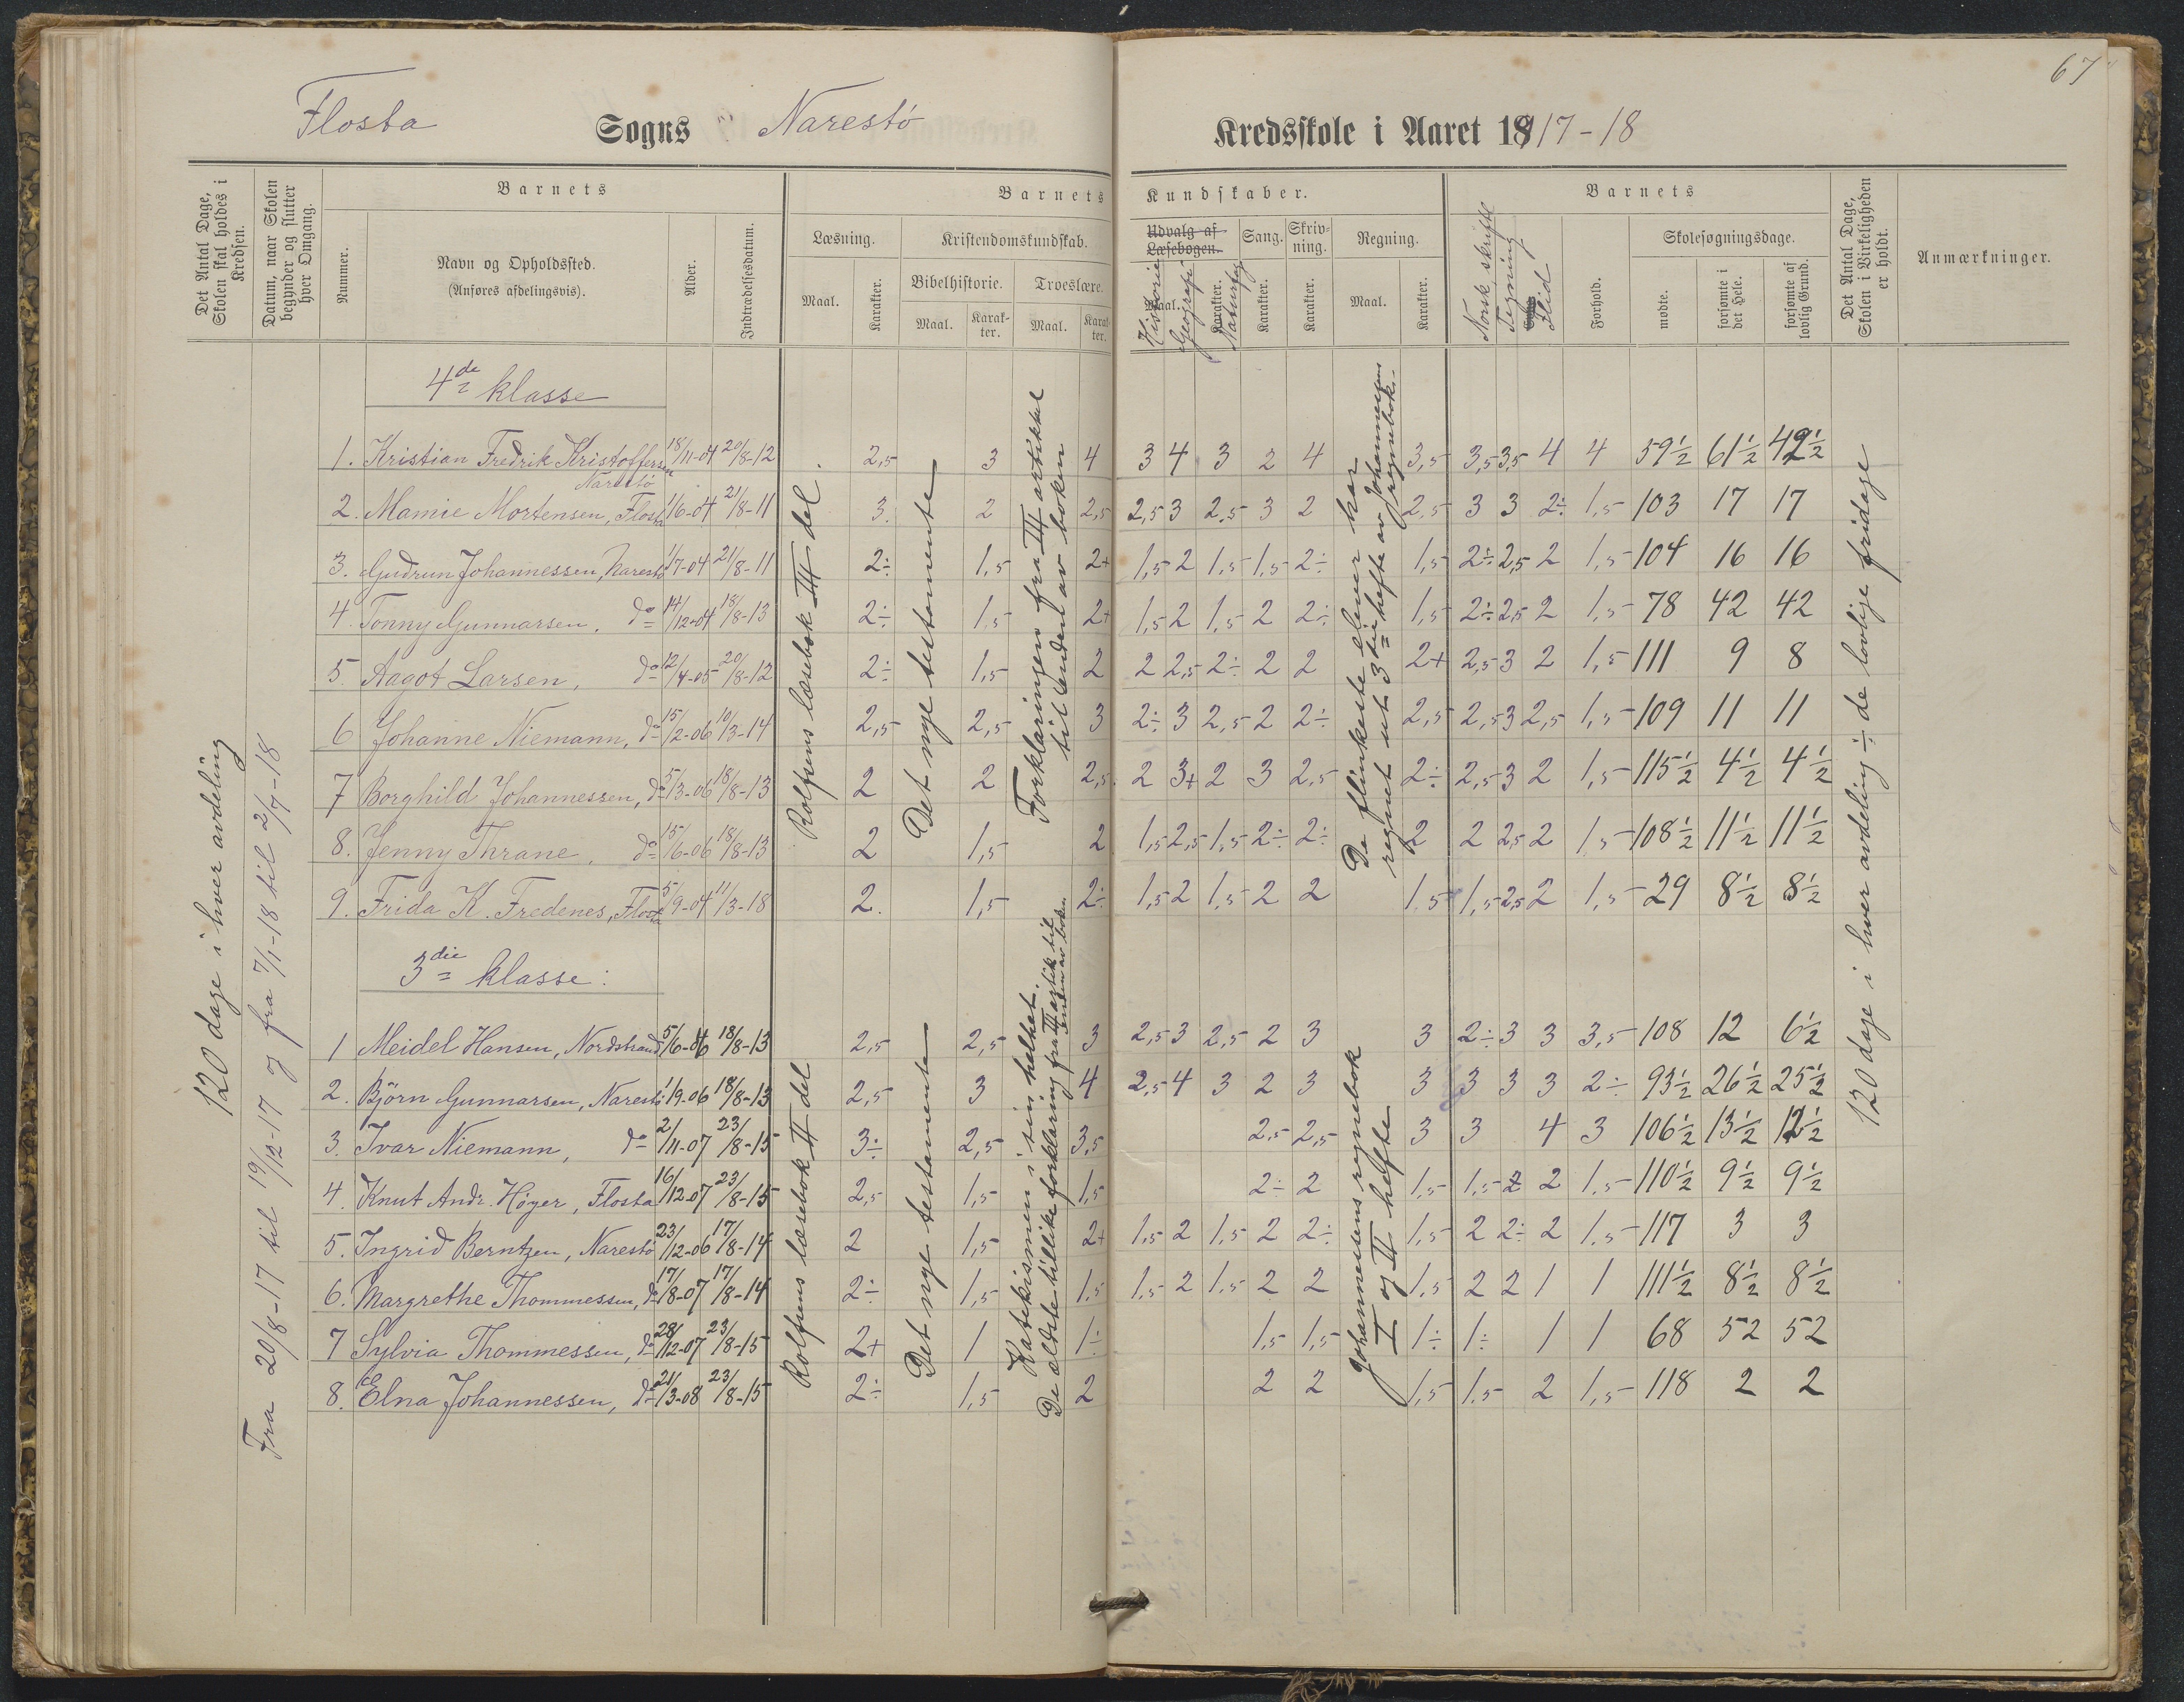 67
Flosta Sogns Narestö Kredsskole i Aaret 1917-18
Det Antal Dage, Skolen skal holdes i Kredsen.
Datum, naar Skolen begynder og slutter hver Omgang.
Barnets
Nummer.
Navn og Opholdssted.
(Anføres afdelingsvis).
Alder.
Indtrædelsesdatum.
Barnets Kundskaber.
Læsning.
Maal.
Karakter.
Kristendomskundskab.
Bibelhistorie.
Maal.
Karakter.
Troeslære.
Maal.
Karakter.
Udvalg af Læsebogen.
Maal.
Karakter.
Historie
Geografi
Naturfag
Sang.
Karakter.
Skrivning.
Karakter.
Regning.
Maal.
Karakter.
Barnets
Norsk skriftl
Tegning
Flid
Forhold.
Skolesøgningsdage.
mødte.
forsømte i det Hele.
forsømte af lovlig Grund.
Det Antal Dage, Skolen i Virkeligheden er holdt.
Anmærkninger.
120 dage i hver avdeling
Fra 20/8-17 til 19/12-17 og fra 7/1-18 til 2/7-18
4de klasse
1. Kristian Fredrik Kristoffersen Narestö 18/11-04 20/8-12 2,5 3 4 3 4 3 2 4 3,5 3,5 3,5 4 4 59½ 61½ 42½
2. Mamie Mortensen, Flosta 1/6-04 21/8-11 3 2 2,5 2,5 3 2,5 3 2 2,5 3 3 2÷ 1,5 103 17 17
3. Gudrun Johannessen, Narestö 1/7-04 21/8-11 2÷ 1,5 2+ 1,5 2 1,5 1,5 2÷ 1,5 2÷ 2,5 2 1,5 104 16 16
4. Tonny Gunnarsen, do 14/12-04 18/8-13 2÷ 1,5 2+ 1,5 2 1,5 2 2÷ 1,5 2÷ 2,5 2 1,5 78 42 42
5. Aagot Larsen, do 12/4-05 20/8-12 2÷ 1,5 2 2 2,5 2÷ 2 2 2+ 2,5 3 2 1,5 111 9 8
6 Johanne Niemann, do 15/2-06 10/3-14 2,5 2,5 3 2÷ 3 2,5 2 2÷ 2,5 2,5 3 2,5 1,5 109 11 11
7 Borghild Johannessen, do 5/3-06 18/8-13 2 2 2,5 2 3+ 2 3 2,5 2÷ 2,5 3 2 1,5 115½ 4½ 4½
8. Jenny Thrane, do 15/6-06 18/8-13 2 1,5 2 1,5 2,5 1,5 2÷ 2÷ 2 2 2,5 2 1,5 108½ 11½ 11½
9. Frida K. Fredenes, Flosta 5/9-04 11/3-18 2. 1,5 2÷ 1,5 2 1,5 2 2 1,5 1,5 2,5 2 1,5 29 8½ 8½
Rolfsens læsebok III del
Det nye testamente
Forklaringen fra III artikkel til enden av boken
De flinkeste elever har regnet ut 3die hefte av Johannesens regnebok.
120 dage i hver avdeling ÷ de lovlige fridage
3die klasse:
1 Meidel Hansen, Nordstrand 5/6-06 18/8-13 2,5 2,5 3 2,5 3 2,5 2 3 3 2÷ 3 3 3,5 108 12 6½
2. Björn Gunnarsen, Narestö 1/9-06 18/8-13 2,5 3 4 2,5 4 3 2 3 3 3 3 3 2÷ 93½ 26½ 25½
3. Ivar Niemann, do 2/11-07 23/8-15 3÷ 2,5 3,5 2,5 2,5 3 3 4 3 106½ 13½ 12½
4. Knut Andr. Höyer, Flosta 16/12-07 23/8-15 2,5 1,5 1,5 2÷ 2 1,5 1,5 2 2 1,5 110½ 9½ 9½
5. Ingrid Berntzen, Narestö 23/12-06 17/8-14 2 1,5 2+ 1,5 2 1,5 2 2÷ 1,5 2 2÷ 2 1,5 117 3 3
6. Margrethe Thommessen, do 17/8-07 17/8-14 2÷ 1,5 1,5 1,5 2 1,5 2 2 1,5 2 2 1 1 111½ 8½ 8½
7 Sylvia Thommessen, do 28/12-07 23/8-15 2+ 1 1÷ 1,5 1,5 1÷ 1÷ 1 1 68 52 52
8. Elna Johannessen, do 21/3-08 23/8-15 2÷ 1,5 2 2 2 1,5 1,5 2 1,5 118 2 2
Rolfsens læsebok II del
Det nye testamente
Katekismen i sin helhet.
De eldste tillike forklaring fra III artik til enden av boken
Johannessens regnebok
I og II hefte